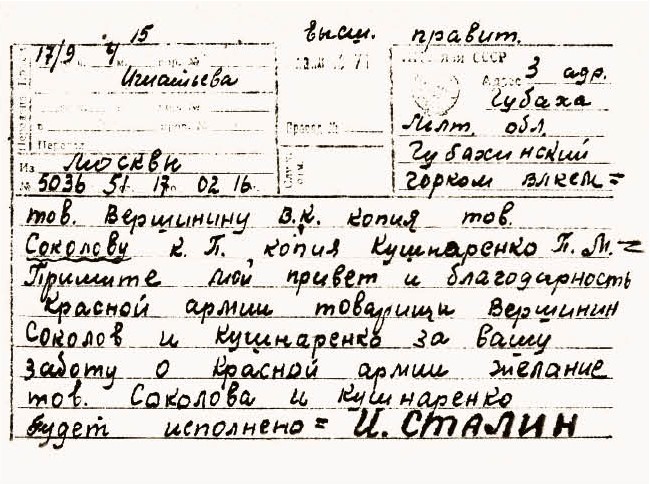 15 высш. правит.
17/9 ч
Игнатьева
СССР
Адрес 3 адр.
Губаха
Млт. обл.
Губахинский
горком влкем=
Из Москвы
№ 5036 51 17 02 16
тов. Вершинину В.К. копия тов.
Соколову К. П. копия Кушнаренко П. М.=
Примите мой привет и благодарность
красной армии товарищи Вершинин
Соколов и Кушнаренко за вашу
заботу о Красной армии желание
тов. Соколова и Кушнаренко
будет исполнено= И. СТАЛИН